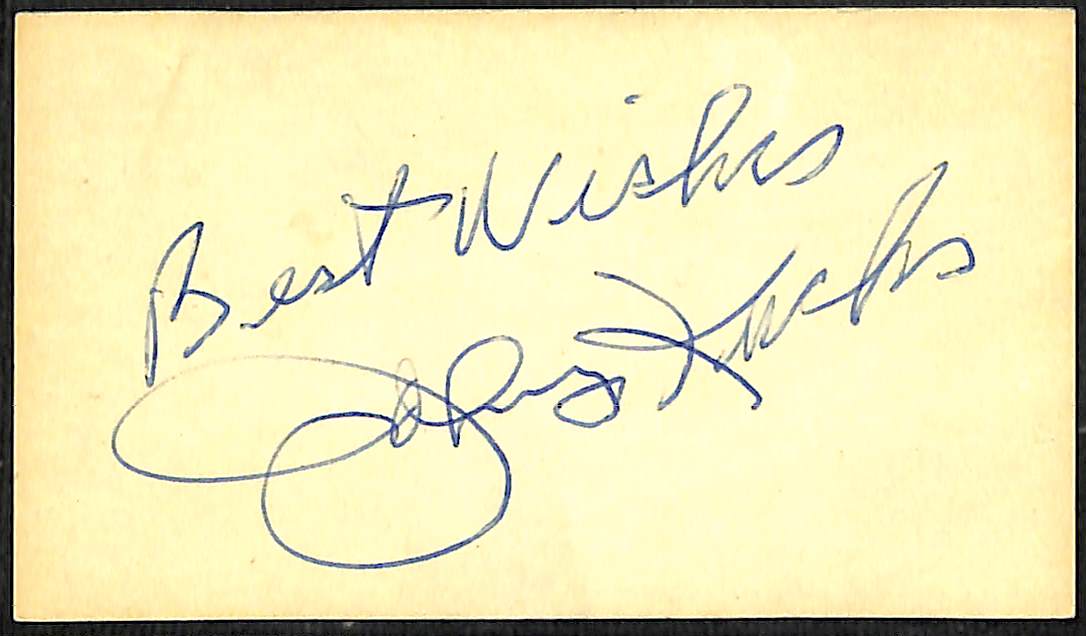 Best Wishes
Johnny Kucks